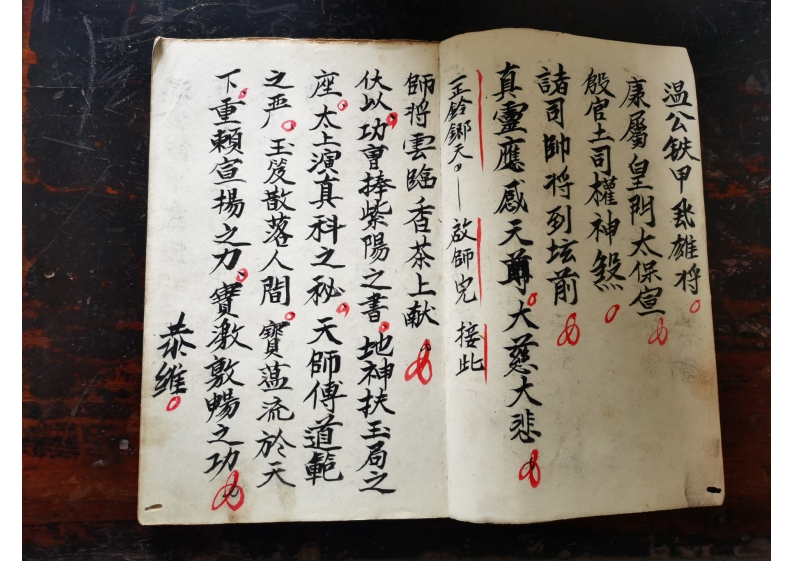 温公铁甲飛雄将
康屬皇門太保宣
殷官土司權神煞
諸司帥将到坛前
真靈應感天尊大慈大悲
正鈴鄉天 啟師完 接此
師将雲臨香茶上献
伏以功曹捧紫陽之書地神扶玉局之
座太上演真科之秘天師傳道範
之严玉笈散落人間寶蕴流於天
下重賴宣揚之力寳敷暢之功
恭維